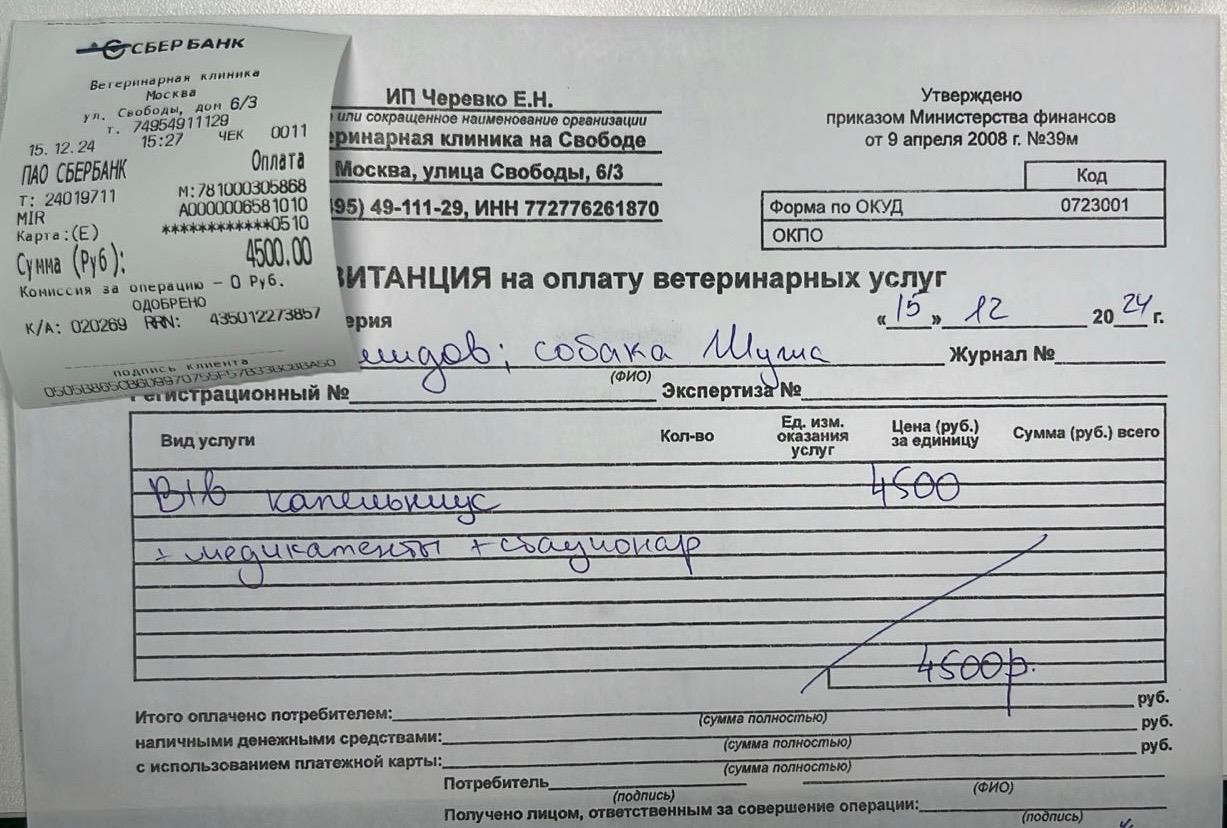 СБЕР БАНК
Ветеринарная клиника
Москва
ул. Свободы, дом 6/3
т. 74954911129
15.12.24 15:27 ЧЕК 0011
ПАО СБЕРБАНК Оплата
Т: 24019711 М:781000305868
MIR A0000006581010
Карта:(E) ************0510
Сумма (Руб): 4500.00
Комиссия за операцию – 0 Руб.
ОДОБРЕНО
К/А: 020269 RRN: 435012273857
подпись клиента
ИП Черевко Е.Н.
или сокращенное наименование организации
еринарная клиника на Свободе
Москва, улица Свободы, 6/3
95) 49-111-29, ИНН 772776261870
Утверждено
приказом Министерства финансов
от 9 апреля 2008 г. №39м
Код
Форма по ОКУД 0723001
ОКПО
ВИТАНЦИЯ на оплату ветеринарных услуг
ерия «15» 12 2024 г.
мидов; собака Муша Журнал №
(ФИО)
Регистрационный № Экспертиза №
Вид услуги Кол-во Ед. изм. оказания услуг Цена (руб.) за единицу Сумма (руб.) всего
В/в капельниця 4500
+ медикаменты + стационар
4500р.
Итого оплачено потребителем: руб.
(сумма полностью)
наличными денежными средствами: руб.
(сумма полностью)
с использованием платежной карты: руб.
(сумма полностью)
Потребитель
(подпись) (ФИО)
Получено лицом, ответственным за совершение операции:
(подпись)